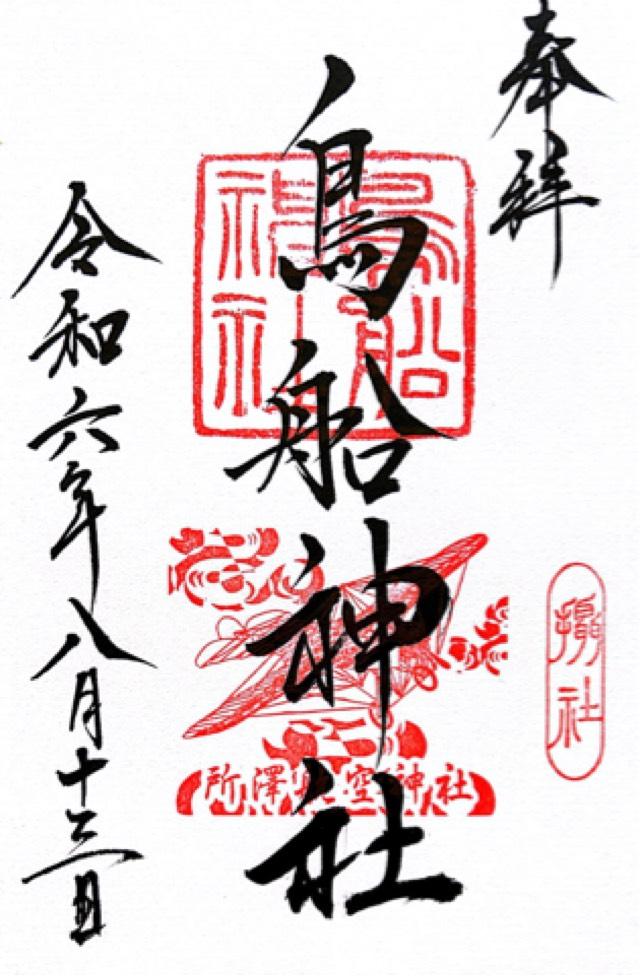 奉拝
攝社
鳥船神社
鳥船
神社
所澤航空神社
令和六年八月十三日